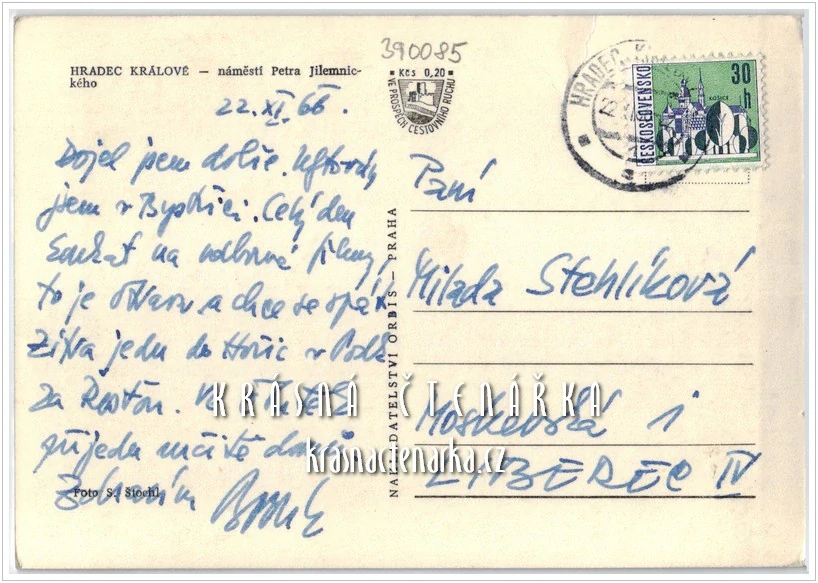 390085
HRADEC KRÁLOVÉ — náměstí Petra Jilemnic-
kého
Kčs 0,20
VE PROSPĚCH CESTOVNÍHO RUCHU
HRADEC
ČESKOSLOVENSKO
30
h
KOŠICE
22. XI. 66.
Dojel jsem dobře.
jsem v Bystřici. Celý den
koukat na odborné filmy,
to je otrava a chce se spát.
Zítra jedu do Hořic v Podk
za
přijedu určitě domů
Zdravím
Foto S. Štochl
NAKLADATELSTVÍ ORBIS — PRAHA
Paní
Milada Stehlíková
Moskevská 1
LIBEREC IV
KRÁSNÁ ČTENÁŘKA
krasnactenarka.cz